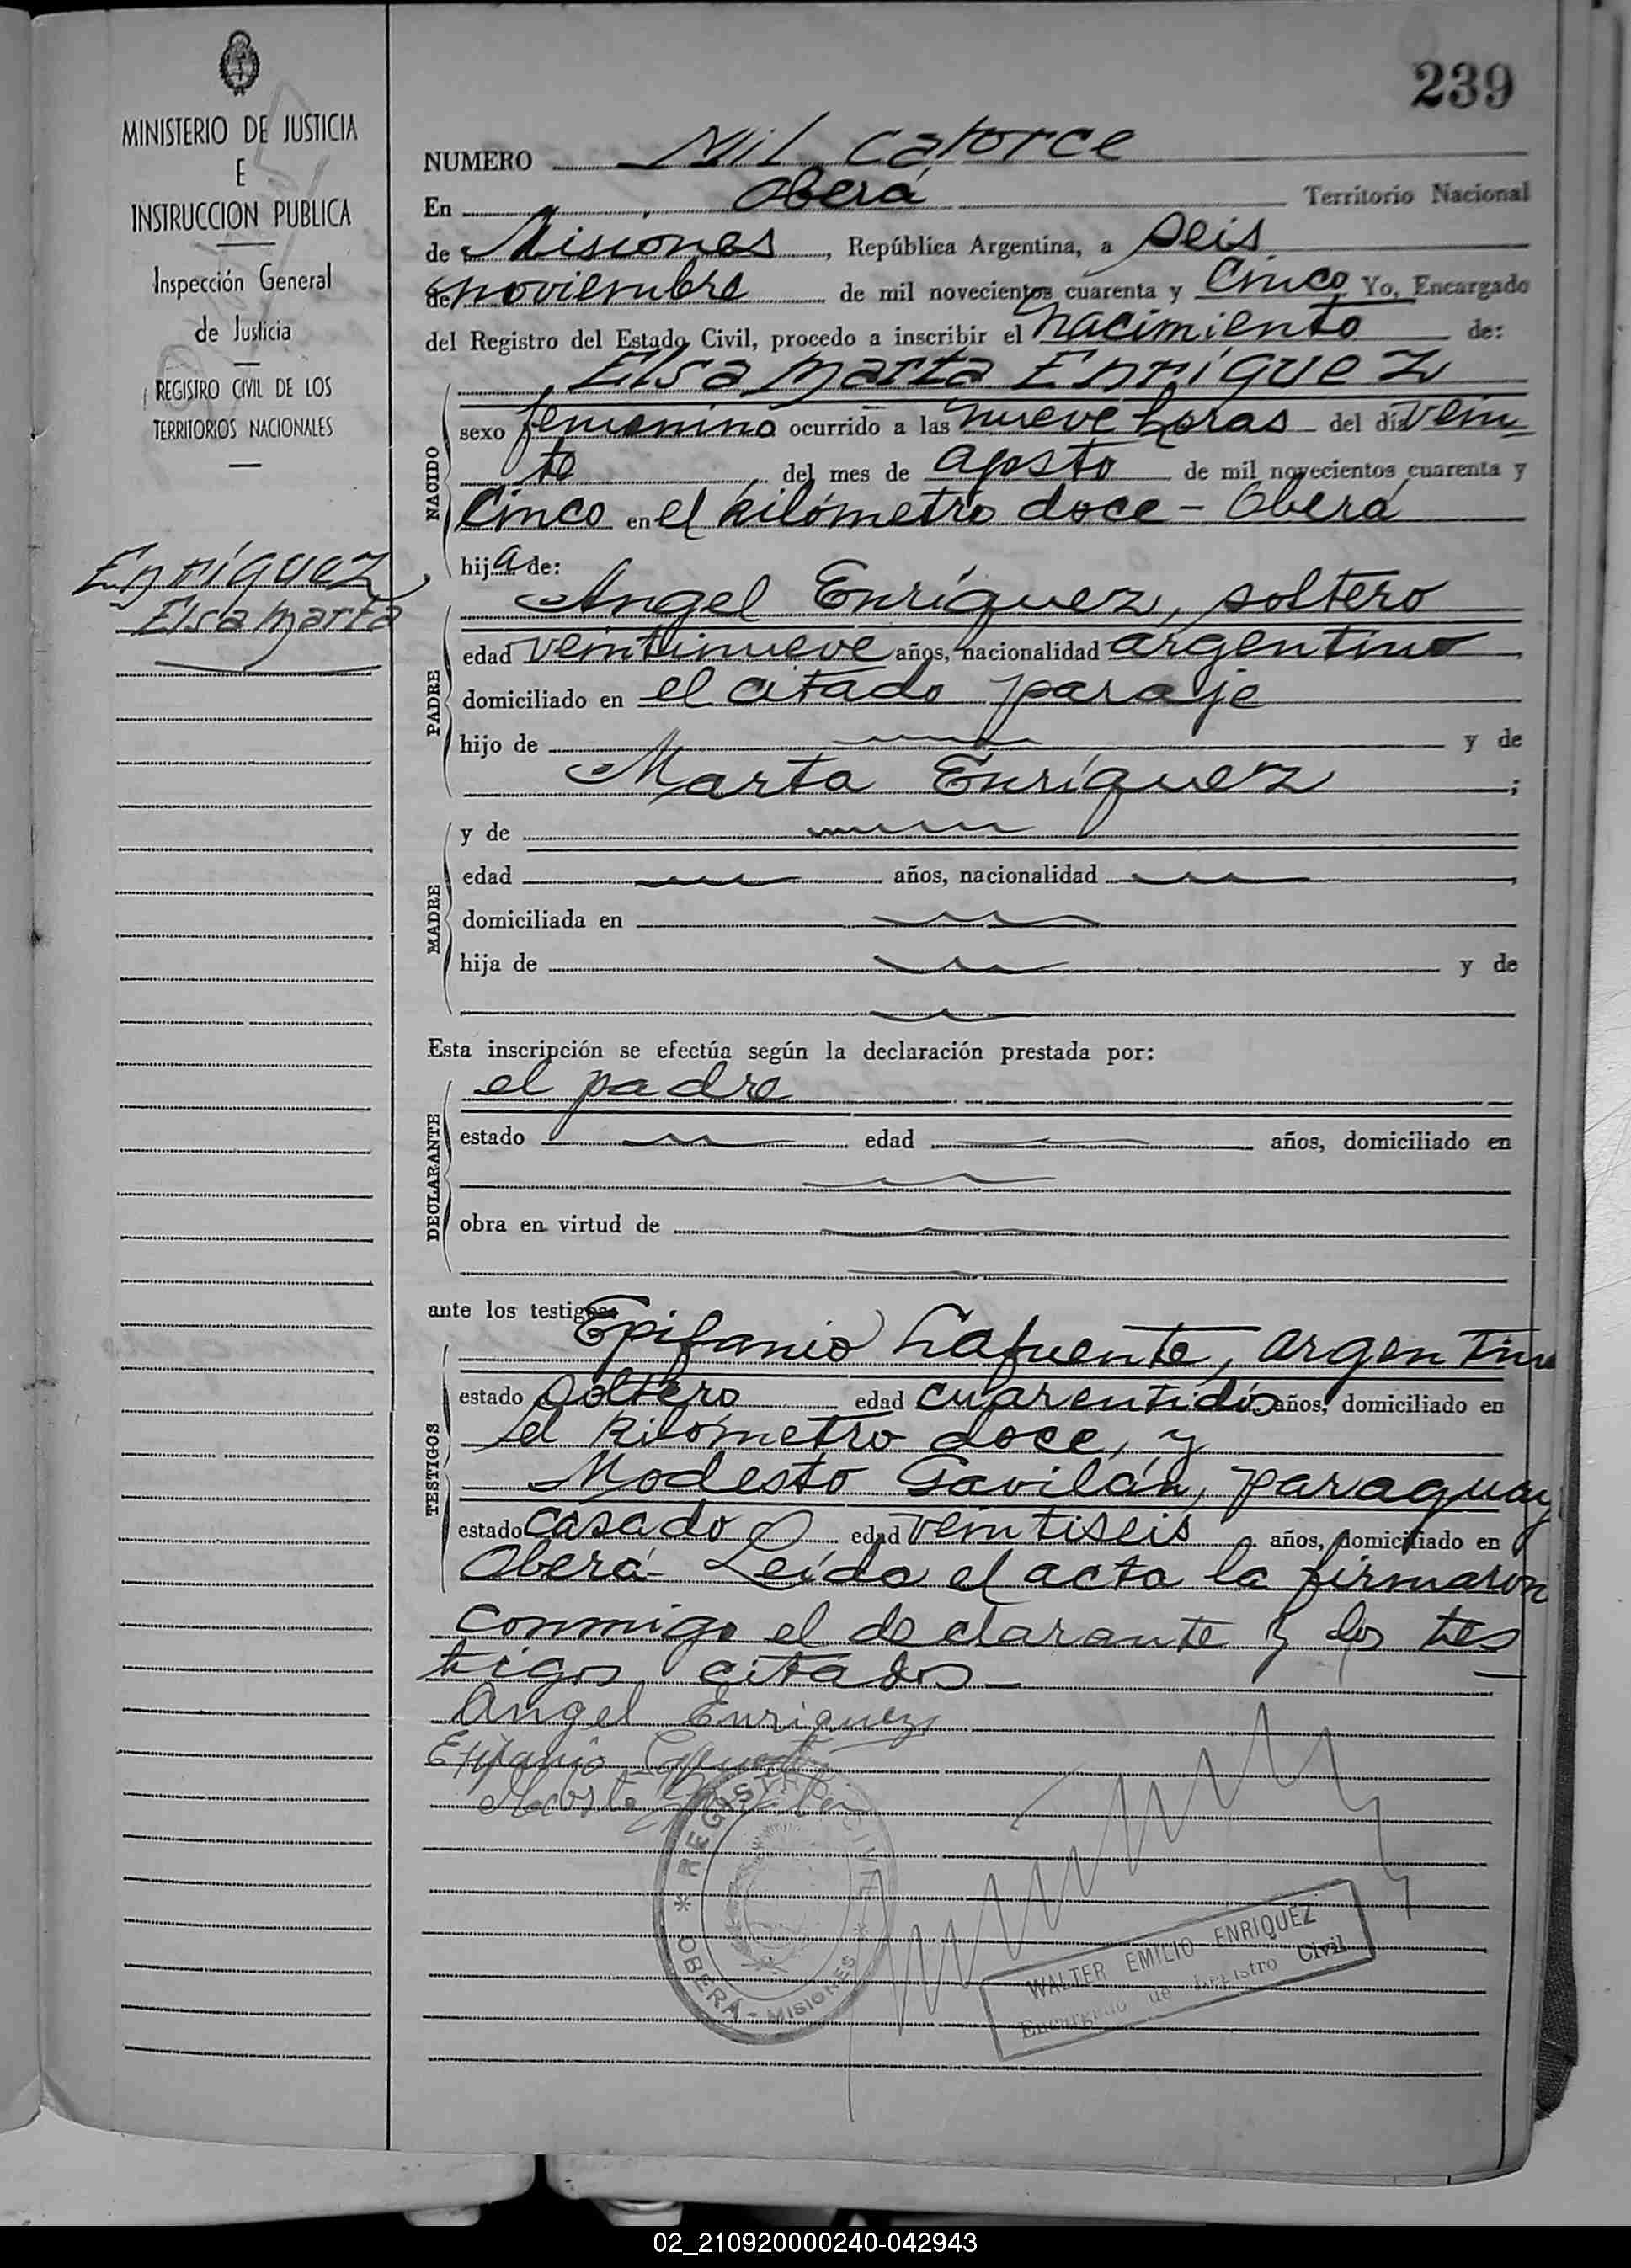 239
MINISTERIO DE JUSTICIA
E
INSTRUCCION PUBLICA
Inspección General
de Justicia
REGISTRO CIVIL DE LOS
TERRITORIOS NACIONALES
Enríquez
Elsa Marta
NUMERO Mil catorce
En Oberá Territorio Nacional
de Misiones, República Argentina, a seis
de noviembre de mil novecientos cuarenta y cinco Yo, Encargado
del Registro del Estado Civil, procedo a inscribir el nacimiento de:
Elsa Marta Enríquez
NACIDO
sexo femenino ocurrido a las nueve horas del día vein
te del mes de agosto de mil novecientos cuarenta y
cinco en el kilómetro doce - Oberá
hija de:
Angel Enríquez, soltero
PADRE
edad veintinueve años, nacionalidad argentino
domiciliado en el citado paraje
hijo de y de
Marta Enríquez ;
MADRE
y de
edad años, nacionalidad
domiciliada en
hija de y de
Esta inscripción se efectúa según la declaración prestada por:
el padre
DECLARANTE
estado edad años, domiciliado en
obra en virtud de
ante los testigos:
Epifanio Lafuente, argentino
TESTIGOS
estado soltero edad cuarentidós años, domiciliado en
el kilómetro doce, y
Modesto Gavilán, paraguay
estado casado edad veintiseis años, domiciliado en
Oberá - Leída el acta la firmaron
conmigo el declarante y los tes
tigos citados -
Angel Enriquez
Epifanio
REGISTRO CIVIL
OBERÁ - MISIONES
WALTER EMILIO ENRIQUEZ
Encargado de Registro Civil
02_210920000240-042943